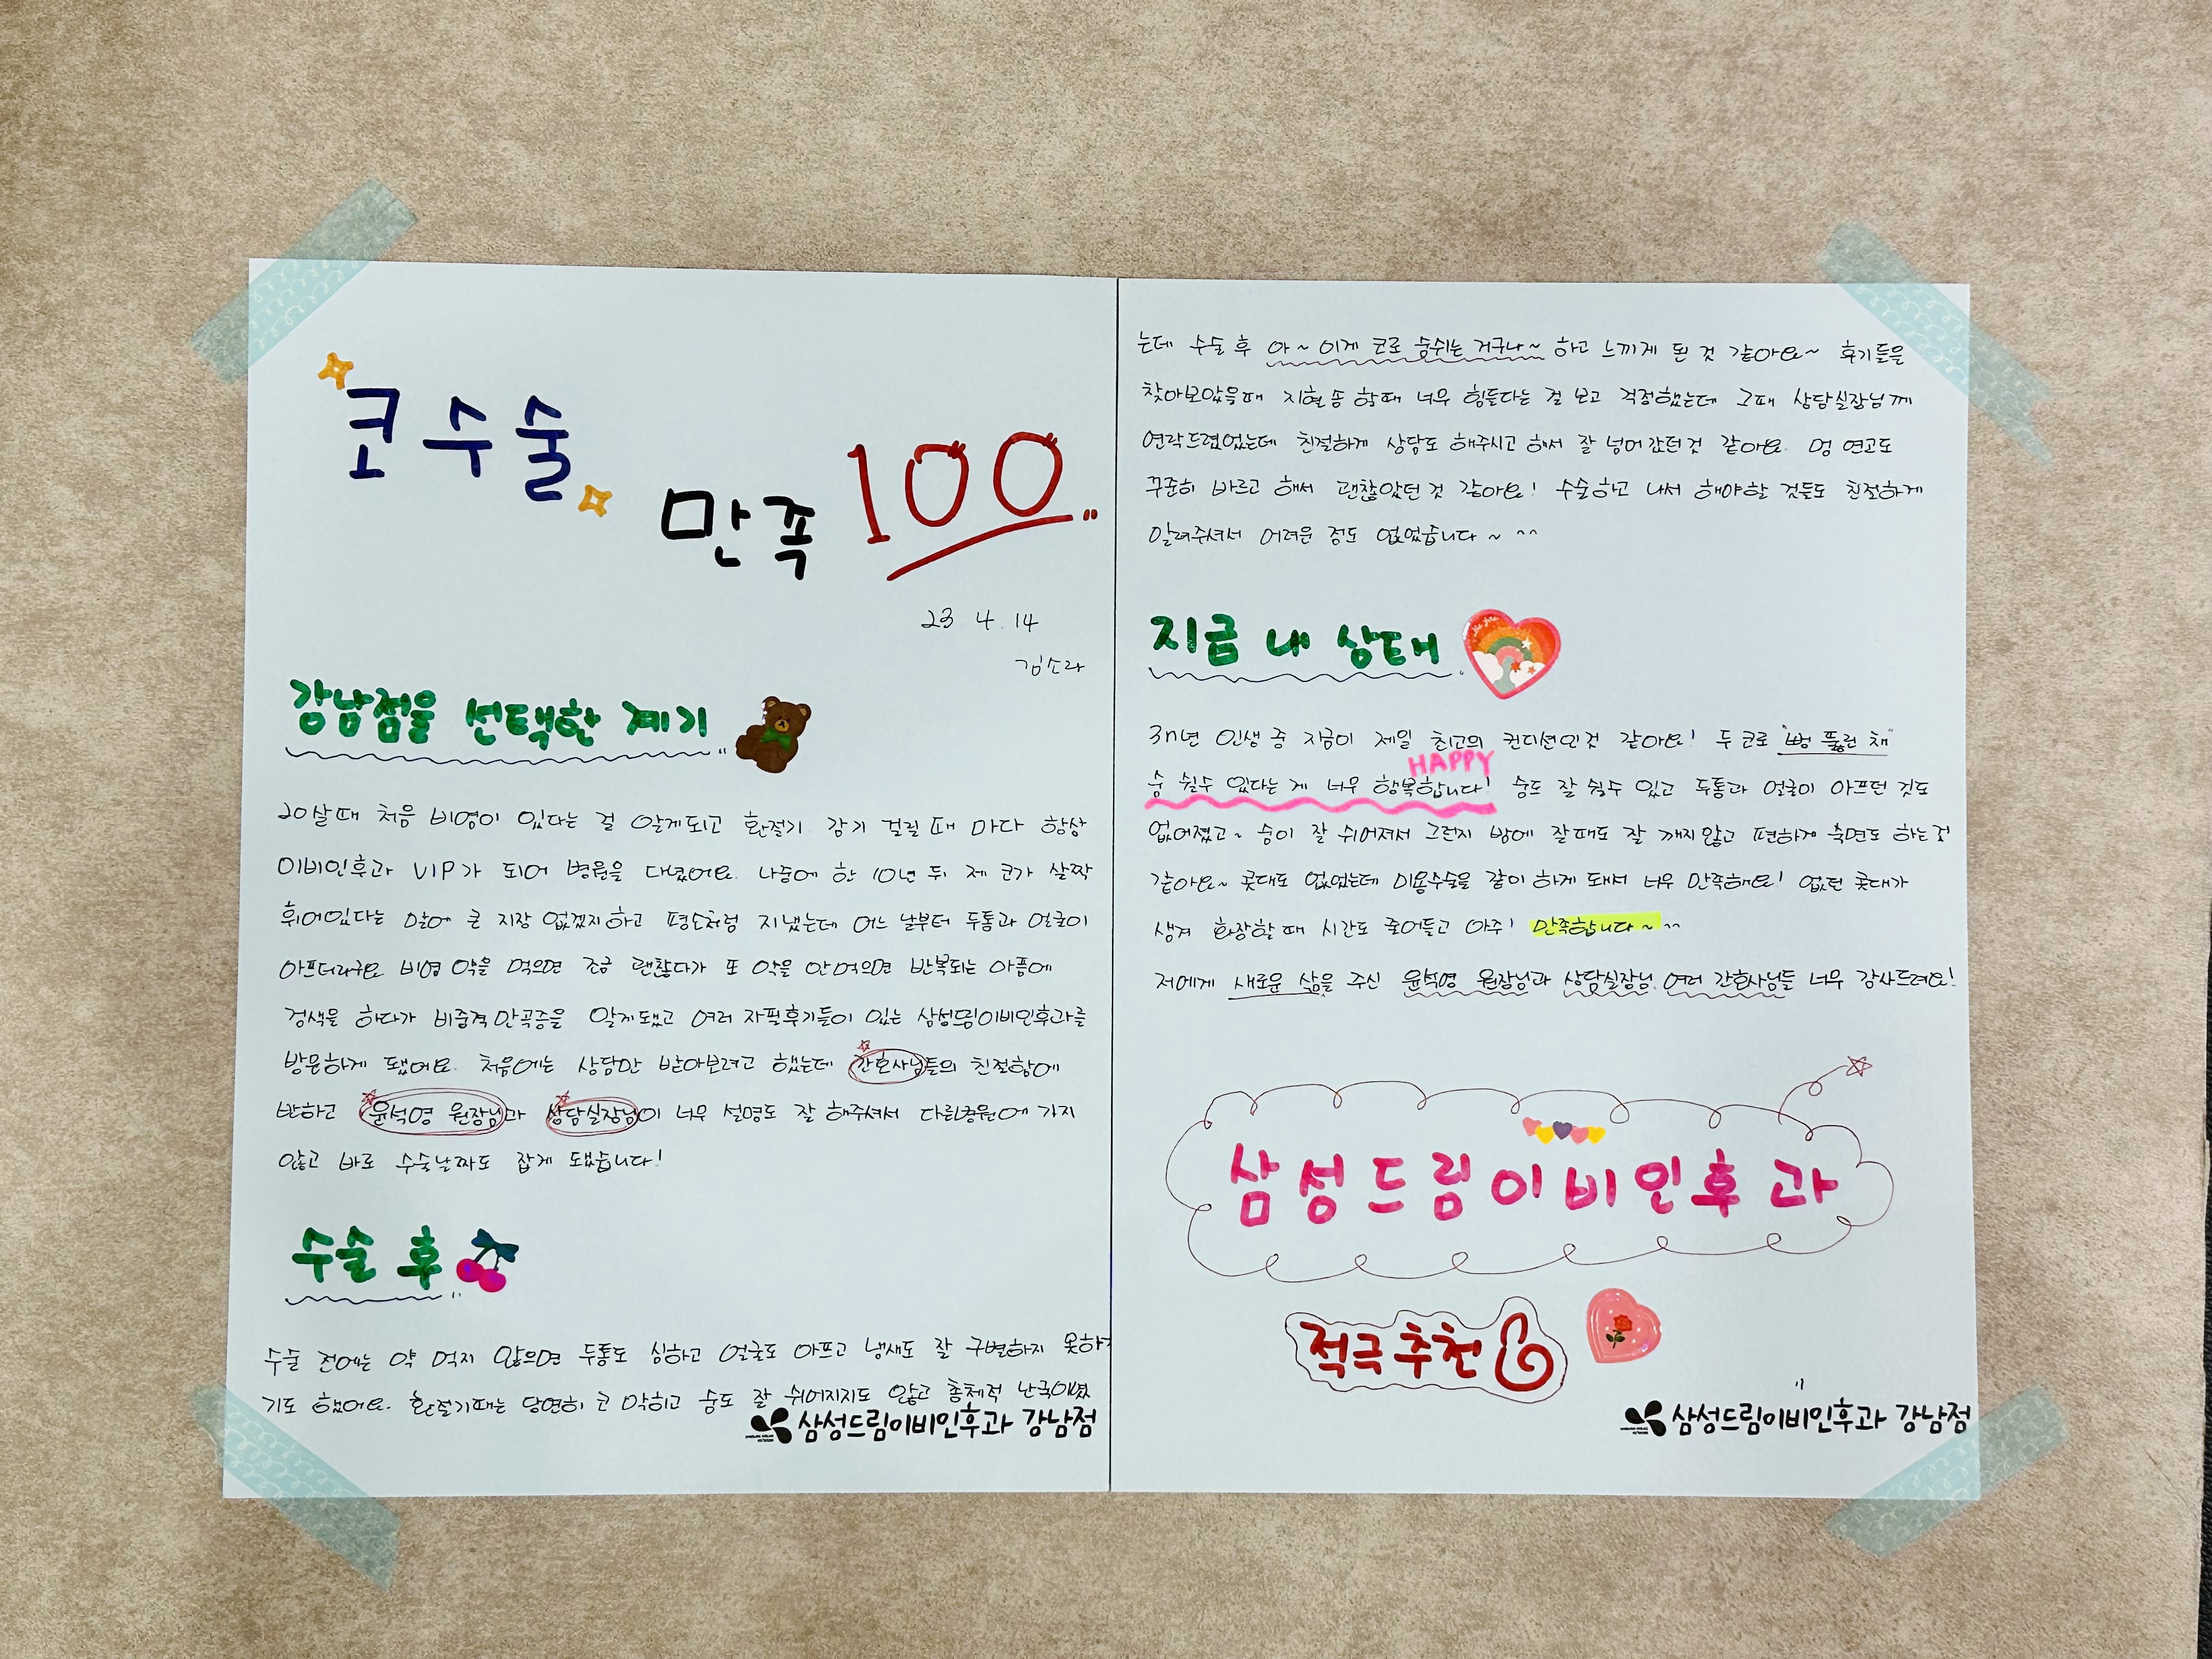 코수술
만족 100
23 4. 14
김소라
강남점을 선택한 계기
20살때 처음 비염이 있다는 걸 알게되고 환절기 감기 걸릴 때 마다 항상
이비인후과 VIP가 되어 병원을 다녔어요. 나중에 한 10년 뒤 제 코가 살짝
휘어있다는 말에 큰 지장 없겠지하고 평소처럼 지냈는데 어느 날부터 두통과 얼굴이
아프더라구요 비염 약을 먹으면 조금 괜찮다가 또 약을 안먹으면 반복되는 아픔에
검색을 하다가 비중격만곡증을 알게됐고 여러 자필후기들이 있는 삼성드림이비인후과를
방문하게 됐어요. 처음에는 상담만 받아보려고 했는데 간호사님들의 친절함에
반하고 윤석영 원장님과 상담실장님이 너무 설명도 잘 해주셔서 다른병원에 가지
않고 바로 수술날짜도 잡게 됐습니다!
수술 후
수술 전에는 약 먹지 않으면 두통도 심하고 얼굴도 아프고 냄새도 잘 구별하지 못하
기도 했어요. 환절기때는 당연히 코 막히고 숨도 잘 쉬어지지도 않고 총체적 난국이였
삼성드림이비인후과 강남점
는데 수술 후 아~ 이게 코로 숨쉬는 거구나~ 하고 느끼게 된 것 같아요~ 후기들을
찾아보았을때 지혈솜 할때 너무 힘들다는 걸 보고 걱정했는데 그때 상담실장님께
연락드렸었는데 친절하게 상담도 해주시고 해서 잘 넘어갔던것 같아요. 멍 연고도
꾸준히 바르고 해서 괜찮았던것 같아요! 수술하고 나서 해야할 것들도 친절하게
알려주셔서 어려운 점도 없었습니다~ ^^
지금 내 상태
3n년 인생 중 지금이 제일 최고의 컨디션인것 같아요! 두 코로 "뻥 뚫린 채"
HAPPY
숨 쉴수 있다는 게 너무 행복합니다! 숨도 잘 쉴수 있고 두통과 얼굴이 아프던 것도
없어졌고~ 숨이 잘 쉬어져서 그런지 밤에 잘때도 잘 깨지않고 편하게 숙면도 하는것
같아요~ 콧대도 없었는데 미용수술을 같이 하게 돼서 너무 만족해요! 없던 콧대가
생겨 화장할 때 시간도 줄어들고 아주! 만족합니다~ ^^
저에게 새로운 삶을 주신 윤석영 원장님과 상담실장님, 여러 간호사님들 너무 감사드려요!
삼성드림이비인후과
적극추천
삼성드림이비인후과 강남점